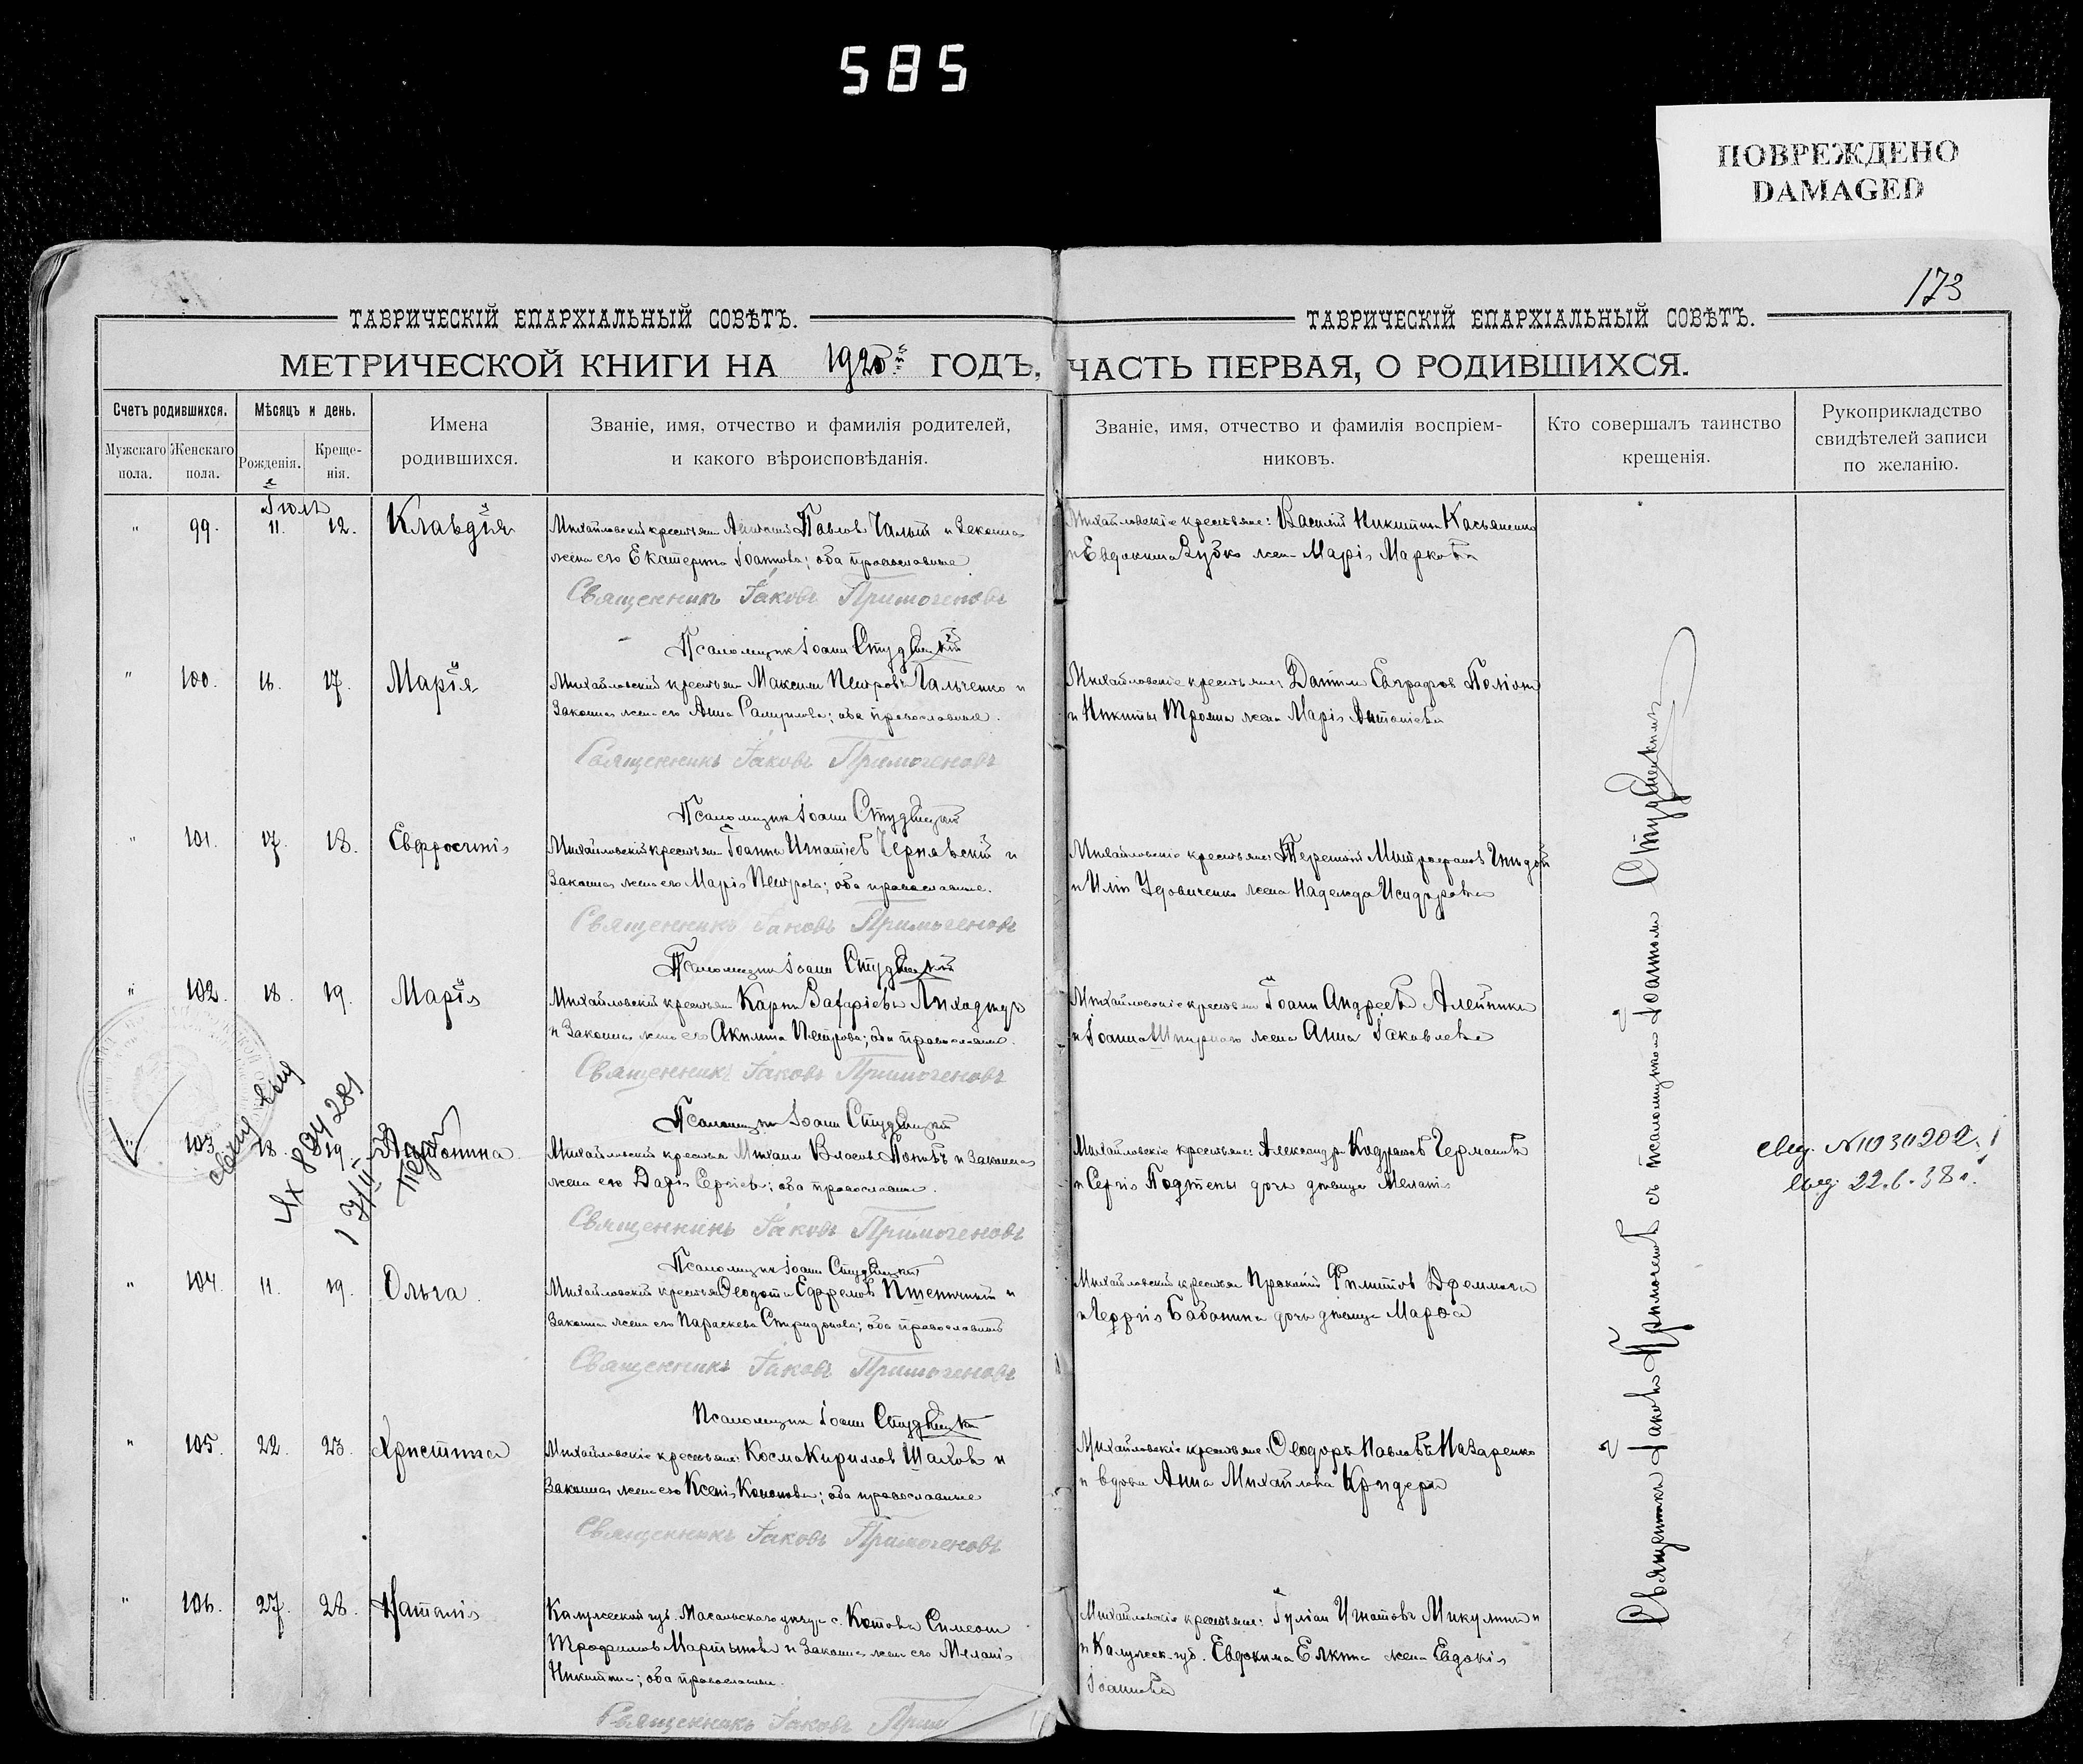 585
ПОВРЕЖДЕНО
DAMAGED
173
ТАВРИЧЕСКІЙ ЕПАРХІАЛЬНЫЙ СОВѢТЪ.
ТАВРИЧЕСКІЙ ЕПАРХІАЛЬНЫЙ СОВѢТЪ.
МЕТРИЧЕСКОЙ КНИГИ НА 1920й ГОДЪ, ЧАСТЬ ПЕРВАЯ, О РОДИВШИХСЯ.
Счетъ родившихся.
Мужскаго пола.
Женскаго пола.
Мѣсяцъ и день.
Рожденія.
Креще-
нія.
Имена
родившихся.
Званіе, имя, отчество и фамилія родителей,
и какого вѣроисповѣданія.
Званіе, имя, отчество и фамилія воспріем-
никовъ.
Кто совершалъ таинство
крещенія.
Рукоприкладство
свидѣтелей записи
по желанію.
Іюль
" 99. 11. 12. Клавдія
Михайловскій крестьян Павлов Чалый и Законная
жена его Екатерина Іоаннова; оба православные
Священникъ Іаковъ Примогеновъ
Псаломщик Іоанн Студвицкій
Михайловскіе крестьяне: Василій Никитин Касьяненко
и Евдокима Зубко жена Марія Маркова
" 100. 16. 17. Марія
Михайловскій крестьян Максим Петровъ Гальченко и
Законная жена его Анна Самуилова; оба православные.
Священникъ Іаковъ Примогеновъ
Псаломщик Іоанн Студвицкій
Михайловскіе крестьяне: Даніил Евграфов
и Никиты жена Марія Антоніева
" 101. 17. 18. Евфросинія
Михайловскій крестьян Іоанн Игнатіев Чернявскій и
Законная жена его Марія Петрова; оба православные.
Священникъ Іаковъ Примогеновъ
Псаломщик Іоанн Студвицкій
Михайловскіе крестьяне: Терентій Митрофанов Гнидой
и Иліи Удовиченко жена Надежда Исидорова
" 102. 18. 19. Марія
Михайловскій крестьян Карп Захаріевъ
и Законная жена его Акилина Петрова; оба православные.
Священникъ Іаковъ Примогеновъ
Псаломщик Іоанн Студвицкій
Михайловскіе крестьяне Іоанн Андреев Алейник
и Іоанна жена Анна Іаковлева
" 103 18. 19. Антонина
Михайловскій крестьян Михаил Власов Попов и Законная
жена его Дарія Сергіева; оба православные.
Священникъ Іаковъ Примогеновъ
Псаломщик Іоанн Студвицкій
Михайловскіе крестьяне: Александр Кодратов Германов
и Сергія дочь девица Меланія
свид. N1030202.
выд. 22.6.38г.
" 104. 11. 19. Ольга.
Михайловскій крестьян Ѳеодот Ефремов Пшеничный и
Законная жена его Параскева Спиридонова; оба православные
Священникъ Іаковъ Примогеновъ
Псаломщик Іоанн Студвицкій
Михайловскій крестьян Прокопій Филиппов
и Георгія Бабанина дочь девица Марѳа
" 105. 22. 23. Христина
Михайловскіе крестьяне: Косма Кириллов Шахов и
Законная жена его Ксенія Кононова; оба православные
Священникъ Іаковъ Примогеновъ
Михайловскіе крестьяне: Ѳеодоръ Павловъ Назаренко
и вдова Анна Михайлова
" 106. 27. 28. Наталія
Калужской губ. Масальскаго уезда с. Котова Симеон
Трофимов Мартынов и Законная жена его Меланія
Никитина; оба православные.
Священникъ Іаковъ Прим
Михайловскіе крестьяне: Іуліан Игнатовъ Микулин
и Калужск. губ. Евфима Елкина жена Евдокія
Іоаннова
Священникъ Іаковъ Примогеновъ съ псаломщиком Іоанном Студвицкимъ